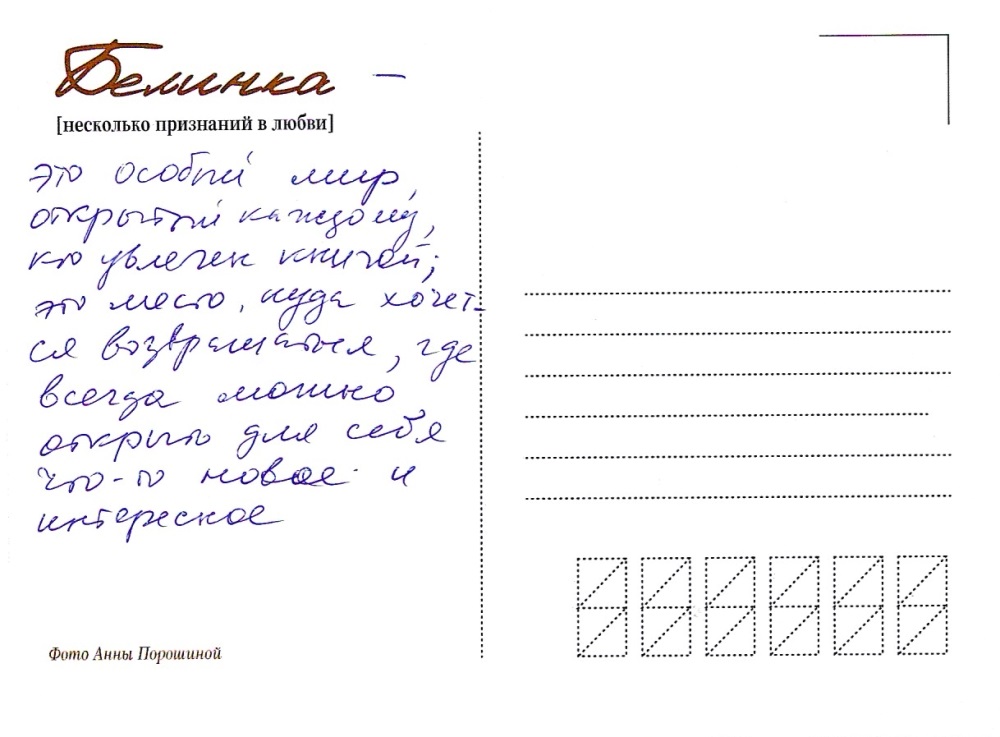 Белинка —
[несколько признаний в любви]
это особый мир,
открытый каждому,
кто увлечен книгой;
это место, куда хочет-
ся возвращаться, где
всегда можно
открыть для себя
что-то новое и
интересное
Фото Анны Порошиной